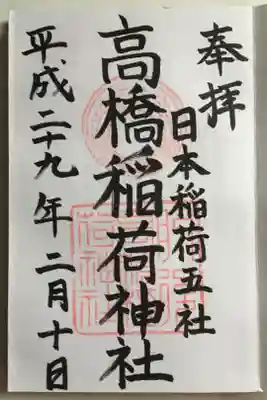 奉拝
日本稲荷五社
高橋稲荷神社
平成二十九年二月十日